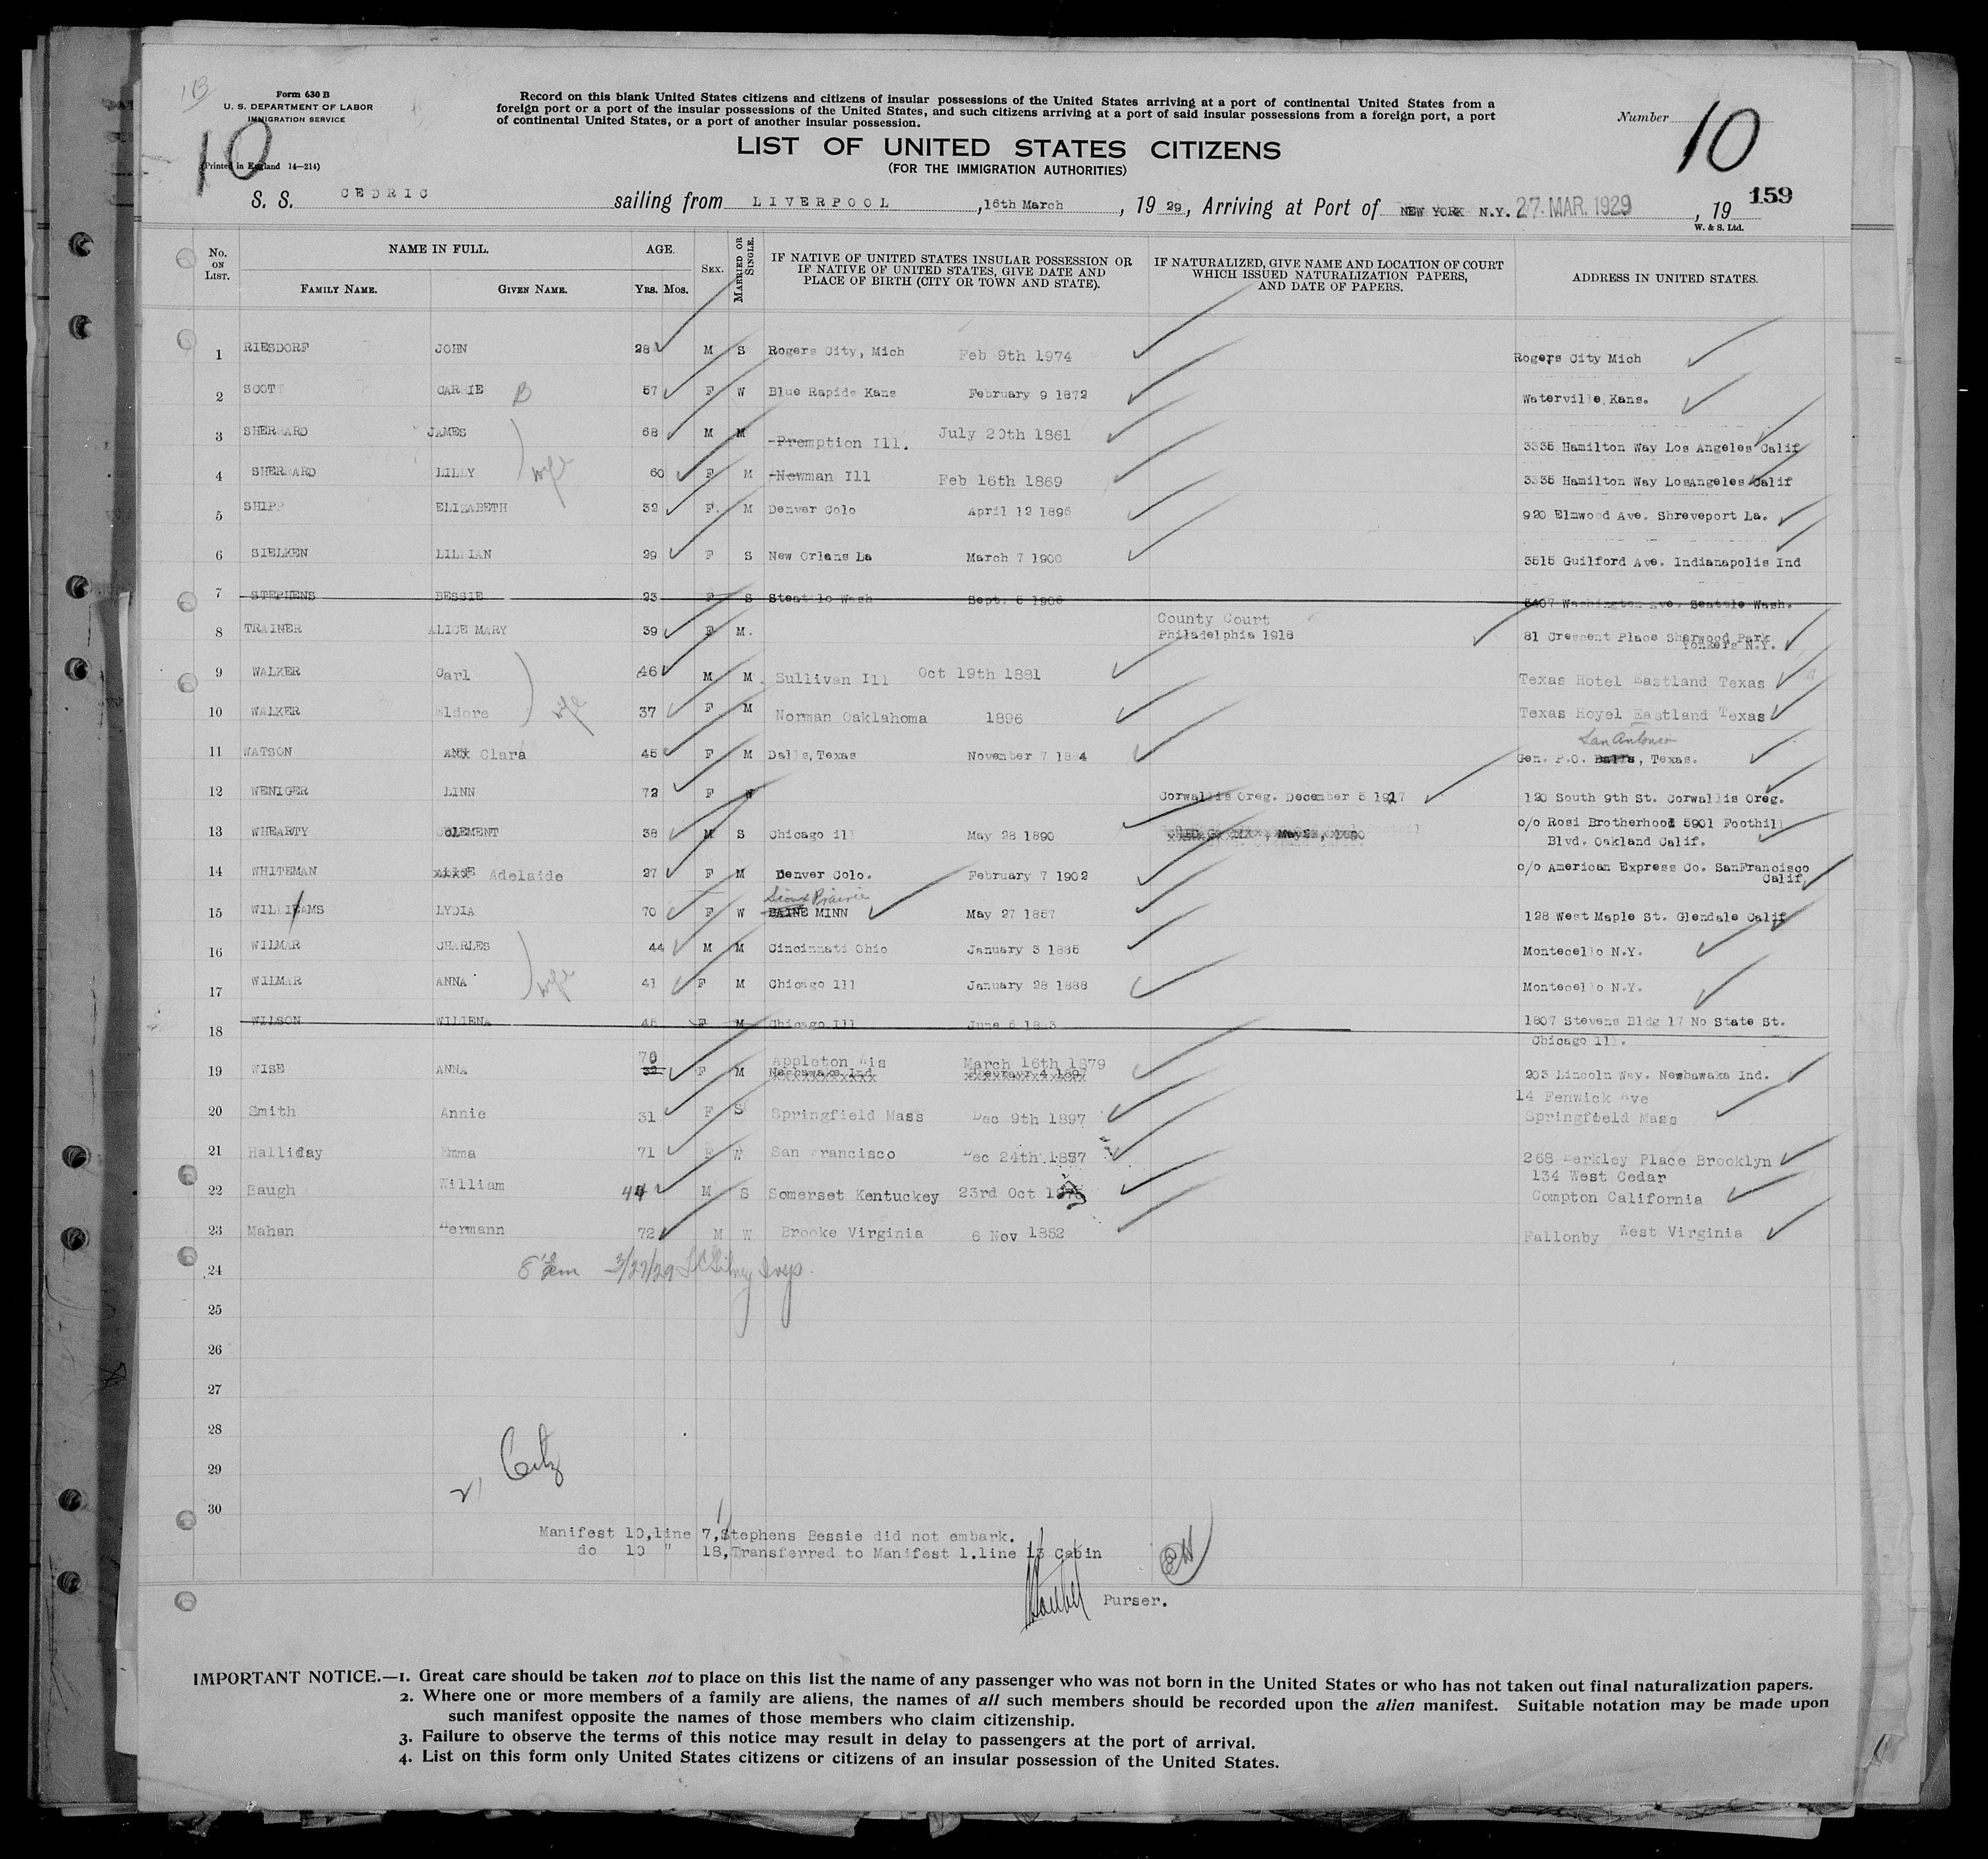 1B
Form 630 B
U. S. DEPARTMENT OF LABOR
IMMIGRATION SERVICE
10
(Printed in England 14—214)
Record on this blank United States citizens and citizens of insular possessions of the United States arriving at a port of continental United States from a
foreign port or a port of the insular possessions of the United States, and such citizens arriving at a port of said insular possessions from a foreign port, a port
of continental United States, or a port of another insular possession.
Number 10
LIST OF UNITED STATES CITIZENS
(FOR THE IMMIGRATION AUTHORITIES)
S. S. CEDRIC sailing from LIVERPOOL, 16th March, 19 29, Arriving at Port of NEW YORK N.Y. 27. MAR. 1929, 19
159
W. & S. Ltd.
No. ON LIST.
NAME IN FULL.
FAMILY NAME. GIVEN NAME.
AGE.
YRS. MOS.
SEX.
MARRIED OR SINGLE.
IF NATIVE OF UNITED STATES INSULAR POSSESSION OR
IF NATIVE OF UNITED STATES, GIVE DATE AND
PLACE OF BIRTH (CITY OR TOWN AND STATE).
IF NATURALIZED, GIVE NAME AND LOCATION OF COURT
WHICH ISSUED NATURALIZATION PAPERS,
AND DATE OF PAPERS.
ADDRESS IN UNITED STATES.
1 RIESDORF JOHN 28 M S Rogers City, Mich Feb 9th 1974 Rogers City Mich
2 SCOTT CARRIE B 57 F W Blue Rapids Kans February 9 1872 Waterville, Kans.
3 SHERRARD JAMES 68 M M Premption Ill. July 20th 1861 3335 Hamilton Way Los Angeles Calif
4 SHERRARD LILLY wife 60 F M Newman Ill Feb 16th 1869 3335 Hamilton Way LosAngeles Calif
5 SHIPP ELIZABETH 32 F. M Denver Colo April 12 1896 920 Elmwood Ave. Shreveport La.
6 SIELKEN LILLIAN 29 F S New Orlans La March 7 1900 3515 Guilford Ave. Indianapolis Ind
7 STEPHENS BESSIE 23 F S Steattle Wash Sept. 5 1906 3407 Washington Ave. Seattle Wash.
8 TRAINER ALICE MARY 39 F M. County Court
Philadelphia 1918 81 Crescent Place Sherwood Park
Yonkers N.Y.
9 WALKER Carl 46 M M. Sullivan Ill Oct 19th 1881 Texas Hotel Eastland Texas
10 WALKER Eldore wife 37 F M Norman Oaklahoma 1896 Texas Hoyel Eastland Texas
San Antonio
11 WATSON Clara 45 F M Dalls, Texas November 7 1884 Gen. P.O. Dalls, Texas.
12 WENIGER LINN 72 F W Corwallis Oreg. December 5 1927 120 South 9th St. Corwallis Oreg.
13 WHEARTY CLEMENT 38 M S Chicago ill May 28 1890 c/o Rosi Brotherhood 5901 Foothill
Blvd. Oakland Calif.
14 WHITEMAN Adelaide 27 F M Denver Colo. February 7 1902 c/o American Express Co. SanFrancisco
Calif.
Sioux Prairie
15 WILLIAMS LYDIA 70 F W BAINE MINN May 27 1857 128 West Maple St. Glendale Calif
16 WILMAR CHARLES 44 M M Cincinnati Ohio January 3 1885 Montecello N.Y.
17 WILMAR ANNA wife 41 F M Chicago Ill January 28 1888 Montecello N.Y.
18 WILSON WILLENA 45 F M Chicago Ill June 6 1883 1807 Stevens Bldg 17 No State St.
Chicago Ill.
70 Appleton Wis March 16th 1879
19 WISE ANNA 32 F M Neshawaka Ind 203 Lincoln Way. Neshawaka Ind.
14 Fenwick Ave
20 Smith Annie 31 F S Springfield Mass Dec 9th 1897 Springfield Mass
21 Halliday Emma 71 F W San Francisco Dec 24th 1857 268 Berkley Place Brooklyn
134 West Cedar
22 Baugh William 44 M S Somerset Kentuckey 23rd Oct Compton California
23 Mahan Hermann 72 M W Brooke Virginia 6 Nov 1852 Fallonby West Virginia
24
3/27/29
25
26
27
28
29
30
21 Citz
Manifest 10,line 7,Stephens Bessie did not embark.
do 10 " 18,Transferred to Manifest 1.line 13 Cabin
Purser.
IMPORTANT NOTICE.—1. Great care should be taken not to place on this list the name of any passenger who was not born in the United States or who has not taken out final naturalization papers.
2. Where one or more members of a family are aliens, the names of all such members should be recorded upon the alien manifest. Suitable notation may be made upon
such manifest opposite the names of those members who claim citizenship.
3. Failure to observe the terms of this notice may result in delay to passengers at the port of arrival.
4. List on this form only United States citizens or citizens of an insular possession of the United States.